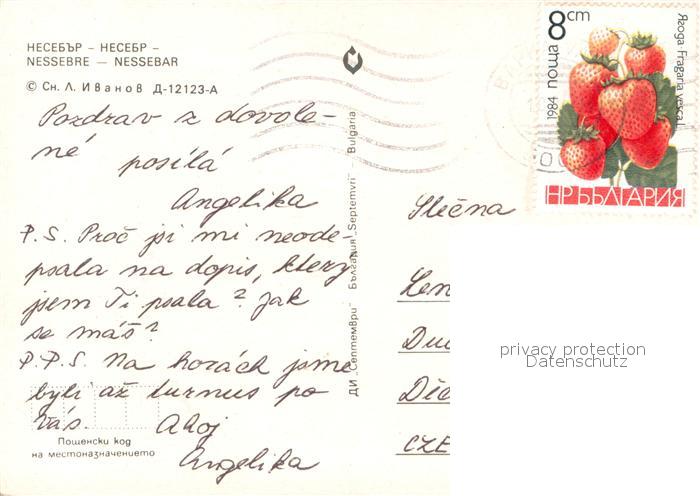 НЕСЕБЪР – НЕСЕБР –
NESSEBRE — NESSEBAR
© Сн. Л. Иванов Д-12123-А
Pozdrav z dovole-
né posílá
Angelika
P.S. Proč jsi mi neode-
psala na dopis, který
jsem Ti psala? Jak
se máš?
P.P.S. Na horách jsme
byli až turnus po
Vás. Ahoj
Angelika
Пощенски код
на местоназначението
ДИ „Септември" България „Septemvri" – Bulgaria
8 cm
поща
1984
Ягода Fragaria vesca L
НР БЪЛГАРИЯ
Slečna
Len
Duc
Děč
CZE
privacy protection
Datenschutz